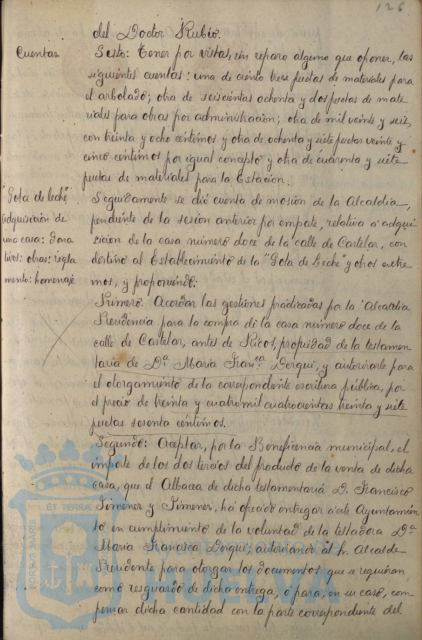 126
del Doctor Rubio.
Cuentas
Sesto: Tener por vistas, sin reparo alguno que oponer, las
siguientes cuentas: una de ciento trece pesetas de materiales para
el arbolado; otra de seiscientas ochenta y dos pesetas de mate
riales para obras por administración; otra de mil veinte y seis,
con treinta y ocho céntimos y otra de ochenta y siete pesetas veinte y
cinco céntimos por igual concepto y otra de cuarenta y siete
pesetas de materiales para la Estación.
"Gota de leche"
adquisición de
una casa: Dona
tivos: obras: regla
mento: homenaje
Seguidamente se dió cuenta de moción de la Alcaldía,
pendiente de la sesión anterior por empate, relativa a adqui
sición de la casa número doce de la calle de Castelar, con
destino al Establecimiento de la "Gota de Leche" y otros extre
mos, y proponiendo:
Primero: Acordar las gestiones practicadas por la Alcaldía
Presidencia para la compra de la casa número doce de la
calle de Castelar, antes de Ricos, propiedad de la testamen
taría de Dª María Franca Dorguí, y autorizarle para
el otorgamiento de la correspondiente escritura pública, por
el precio de treinta y cuatro mil cuatrocientas treinta y siete
pesetas sesenta céntimos.
Segundo: Aceptar, por la Beneficencia municipal, el
importe de los dos tercios del producto de la venta de dicha
casa, que el Albacea de dicha testamentaría D. Francisco
Jimenez y Jimenez, ha ofrecido entregar a este Ayuntamien
to en cumplimiento de la voluntad de la testadora Dª
María Francisca Dorguí; autorizando al Sr. Alcalde
Presidente para otorgar los documentos que se requieran
como resguardo de dicha entrega, o para, en su caso, com
pensar dicha cantidad con la parte correspondiente del